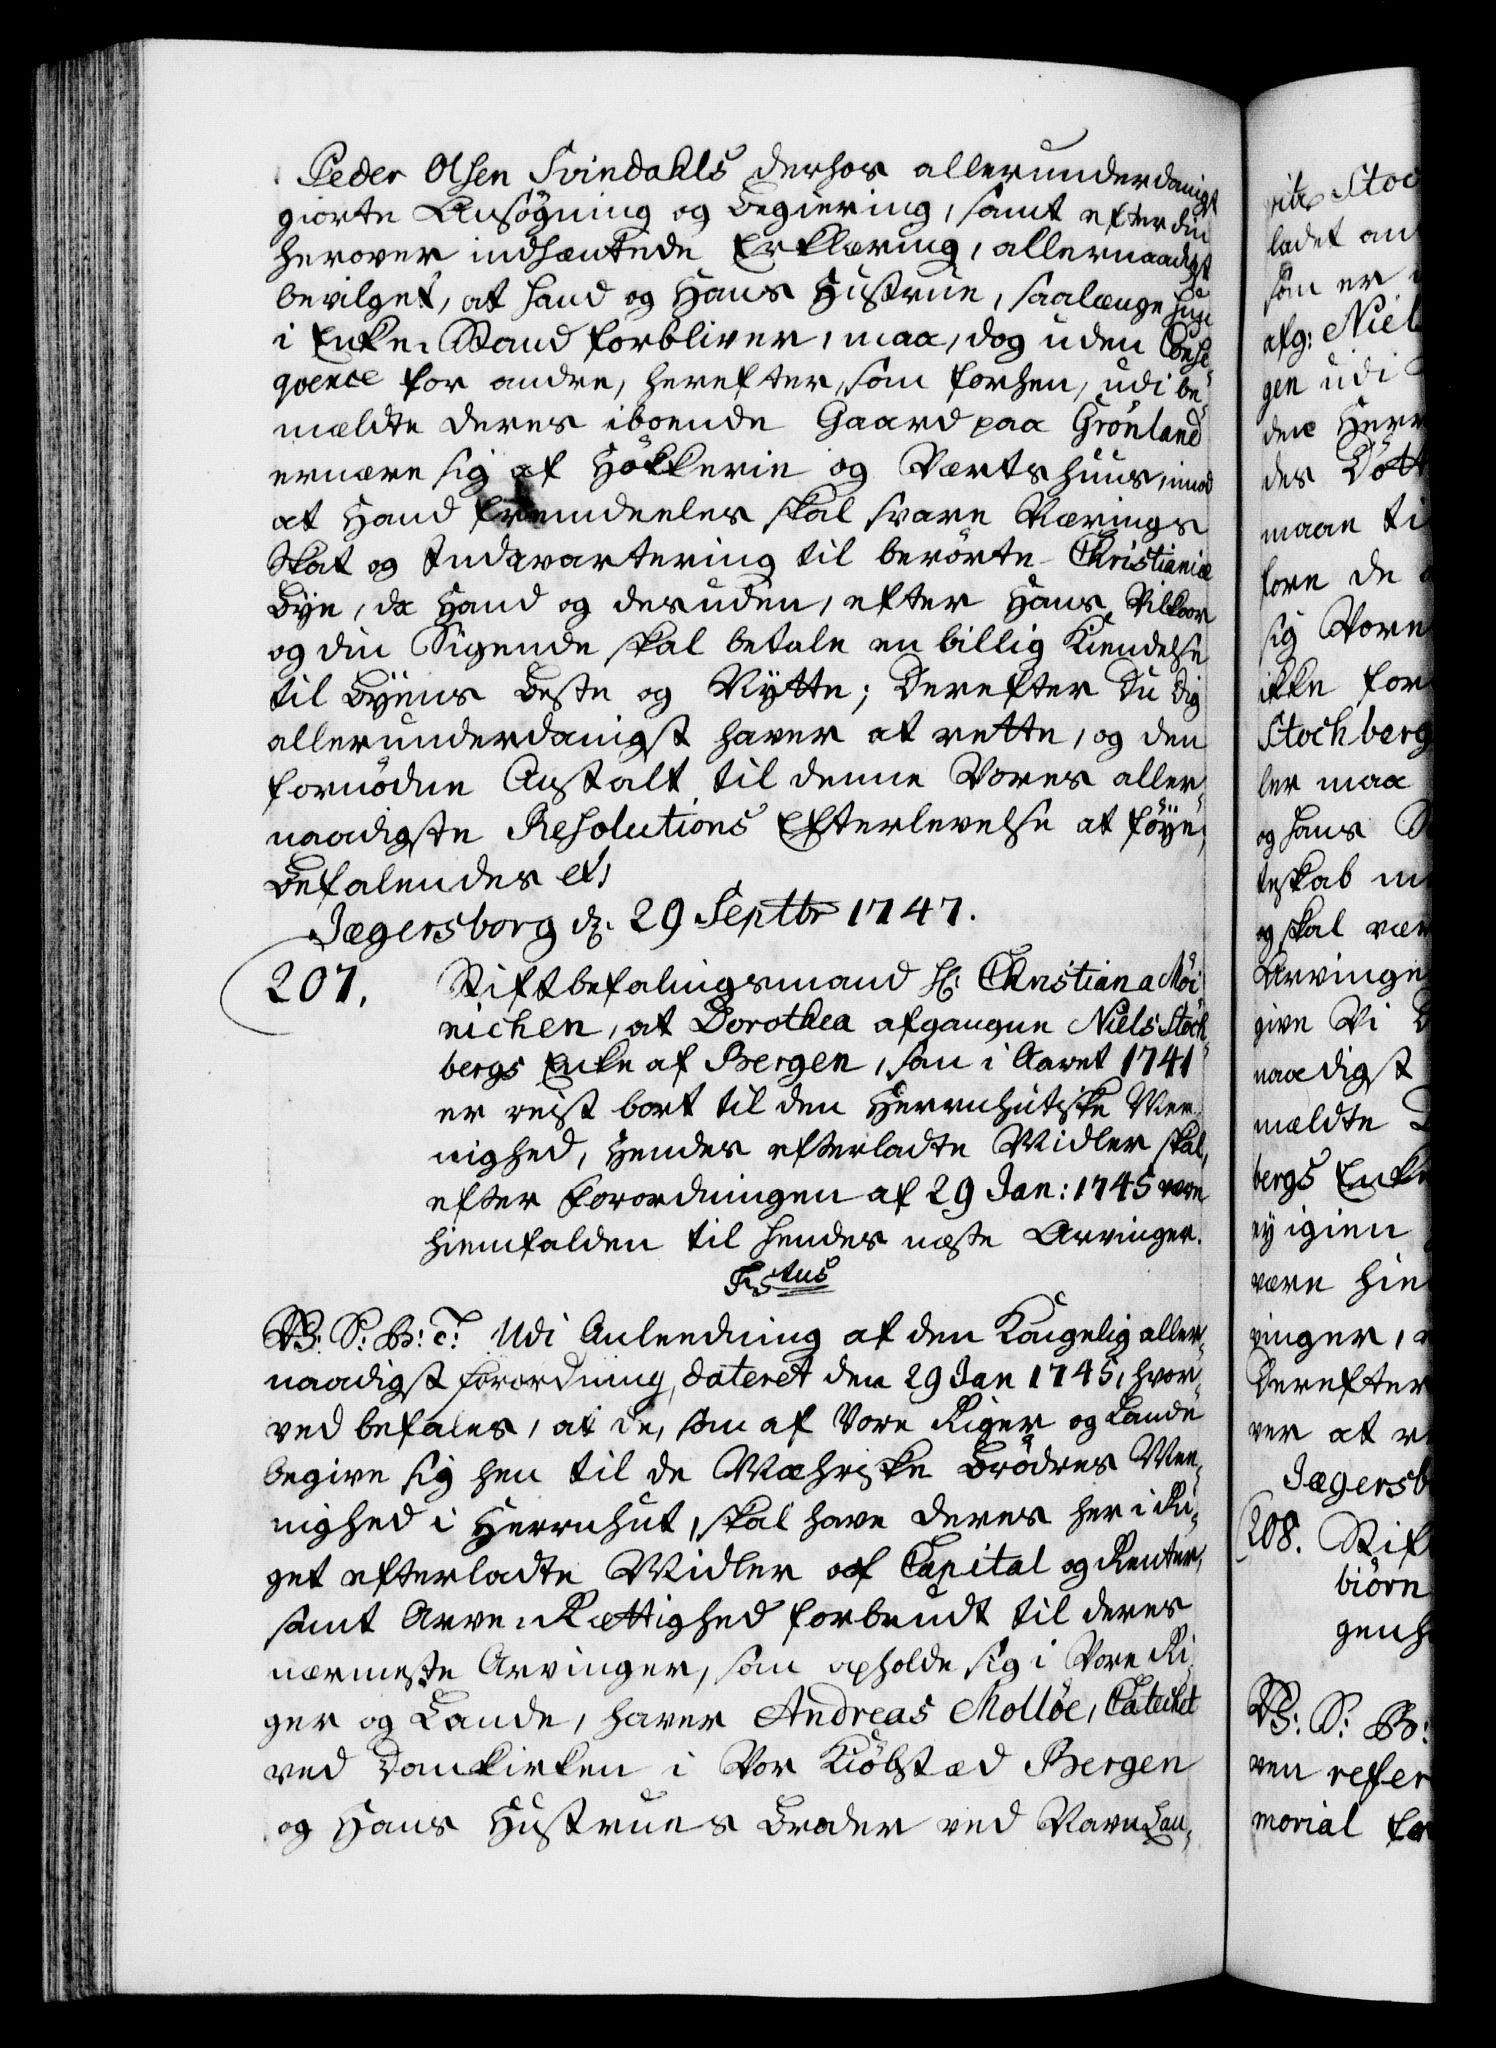 Peder Olsen Svindahls derhos allerunderdanigst
giorte Ansögning og begiering, samt efter din
herover indhæntede Erklæring, allernaadigst
bevilget, at hand og Hans Hustrue, saalænge hun
i Enke-Stand forbliver, maa, dog uden Conse-
qvence for andre, herefter, som forhen, udi be-
mældte deres iboende Gaard paa Grönland
ernære sig af Hökkerie og Vertshuus, imod
at Hand fremdeeles skal svare Nærings
Skat og Indqvartering til berörte Christianiæ
Bye, da Hand og desuden, efter Hans Vilkaar
og din Sigende skal betale en billig Kiendelse
til Byens Beste og Nytte; Derefter Du dig
allerunderdanigst haver at rette, og den
fornödne Anstalt til denne Vores aller-
naadigste Resolutions Efterlevelse at föye,
Befalendes etc
Jægersborg dz. 29 Septbr 1747.
207. Stiftbefalingsmand Hr: Christian a Möi
nichen, at Dorothea afgangne Niels Stoch-
bergs Enke af Bergen, som i Aaret 1741
er reist bort til den Herrnhutiske Mee-
nighed, Hendes efterladte Midler skal,
efter Forordningen af 29 Jan: 1745 være
hiemfalden til hendes næste Arvinger.
F5tus
VS: P: B: T: Udi Anleedning af den Kongelig aller-
naadigst forordning, dateret den 29 Jan 1745, hvor-
ved befales, at de, som af Vore Riger og Lande
begive sig hen til de Mæhriske Brödres Mee-
nighed i Herrnhut, skal have deres her i Ri-
get efterladte Midler af Capital og Renter,
samt Arve-Rettighed forbrudt til deres
nærmeste Arvinger, som opholde sig i Vore Ri-
ger og Lande, haver Andreas Mollöe, Catechet
ved Domkirken i Vor Kiöbstæd Bergen
og Hans Hustrues Broder ved Navn Lau-
Stoc
ladet an
som er
afg: Niel
gen udi
den Herr
des Dött
maae ti
fore de
sig Vore
ikke for
Stochberg
ler maa
og hans
teskab
og skal vær
Arvinge
give Vi
naadigst
mældte
bergs Enke
ey igien
være hie
vinger,
Derefter
ver at
Jægersb
208. Stif
biörn
genh
VS: P: B:
ven refer
morial for